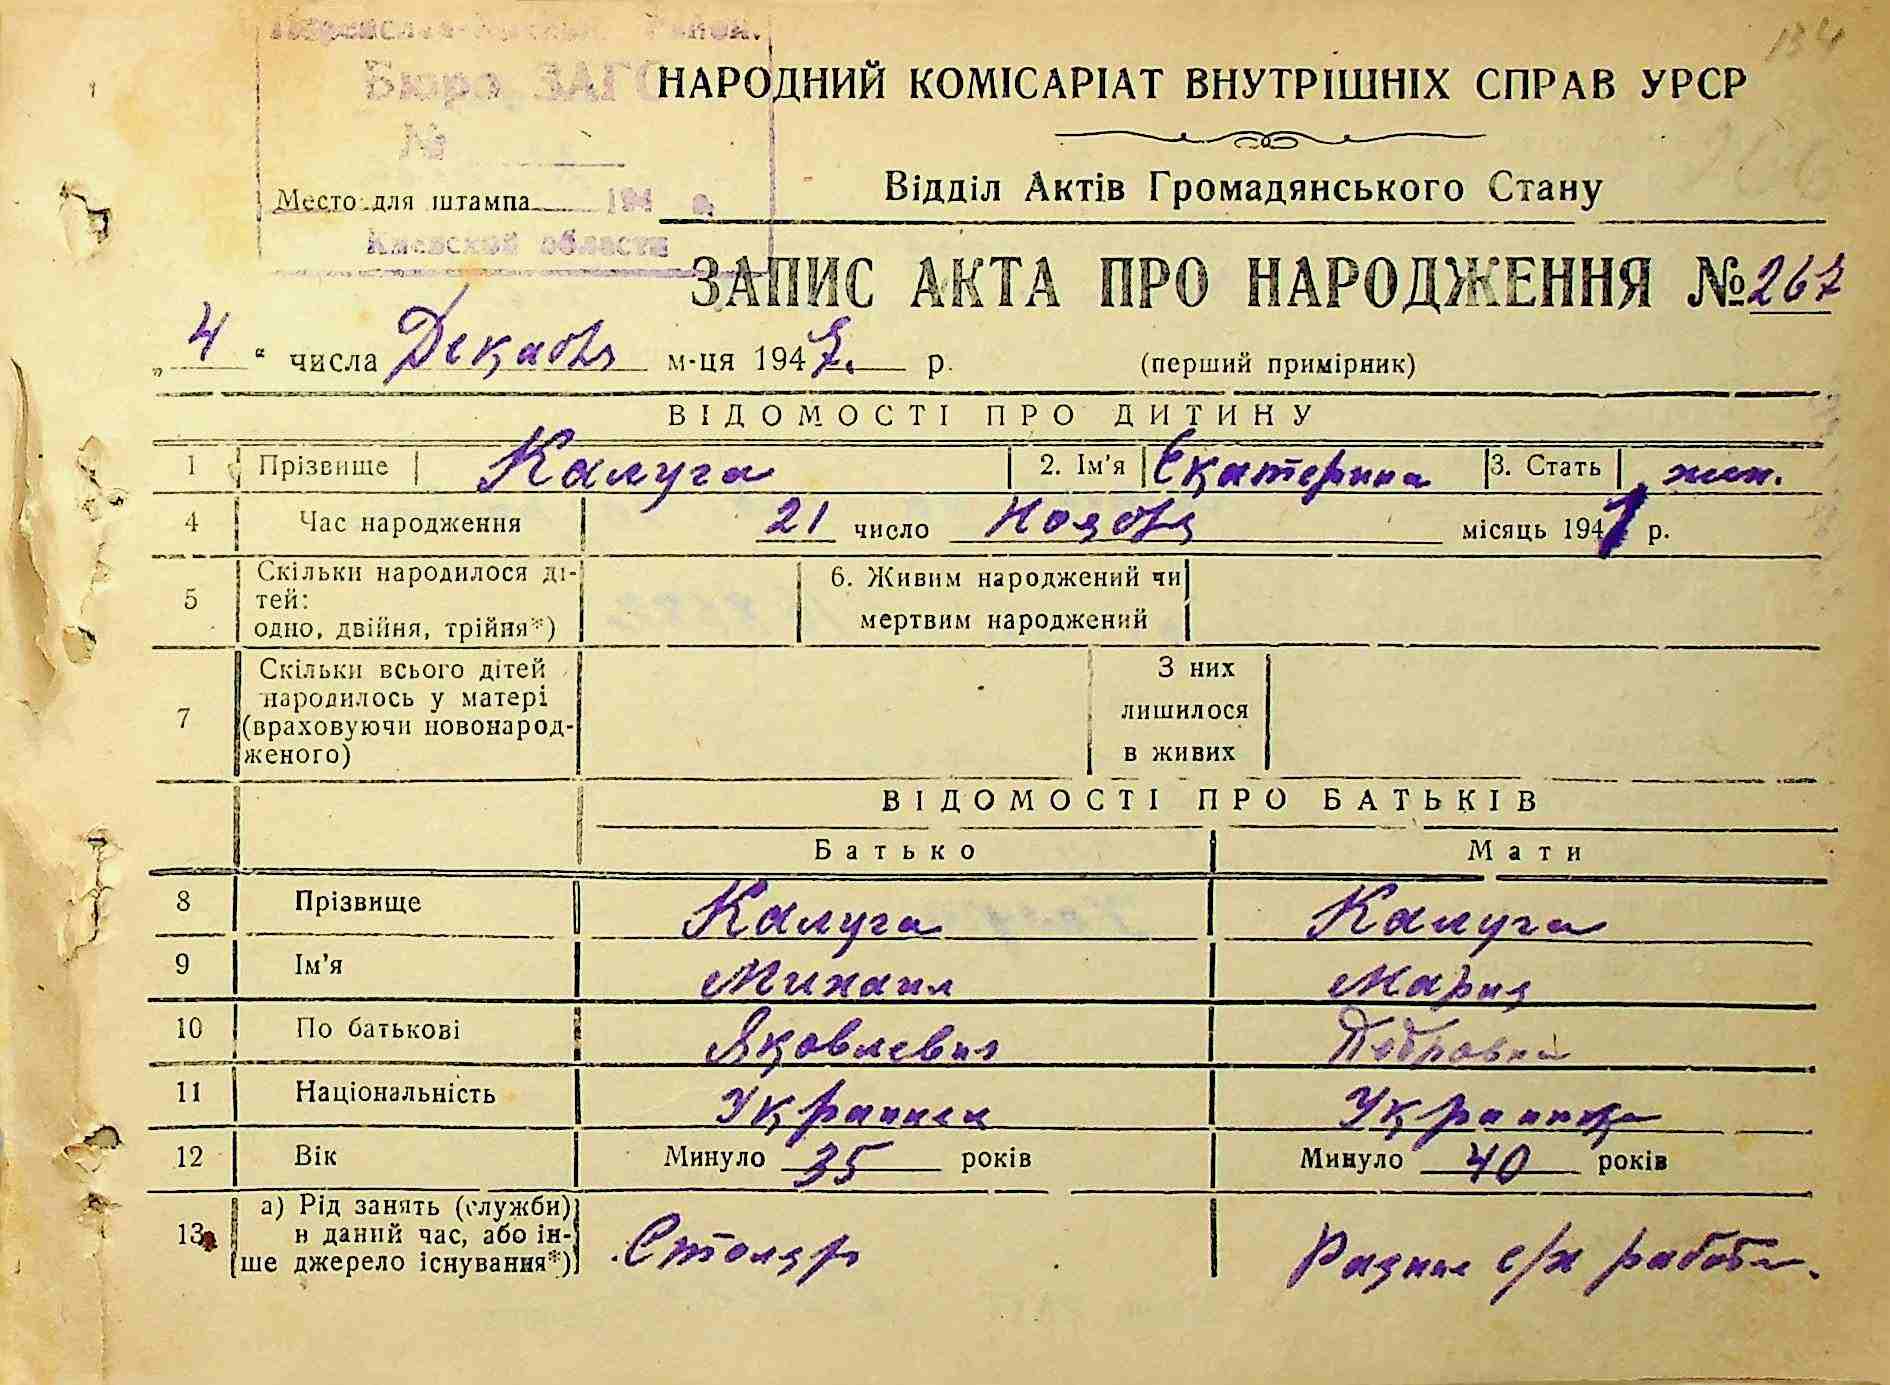 134
Бюро ЗАГС
№
НАРОДНИЙ КОМІСАРІАТ ВНУТРІШНІХ СПРАВ УРСР
Відділ Актів Громадянського Стану
Место для штампа 194 г.
Киевской области
ЗАПИС АКТА ПРО НАРОДЖЕННЯ № 267
„ 4 “ числа Декабря м-ця 194 р. (перший примірник)
ВІДОМОСТІ ПРО ДИТИНУ
1 Прізвище Калуга 2. Ім'я Екатерина 3. Стать жен.
4 Час народження 21 число Ноября місяць 1941 р.
5 Скільки народилося ді-
тей:
одно, двійня, трійня*)
6. Живим народжений чи
мертвим народжений
7 Скільки всього дітей
народилось у матері
(враховуючи новонарод-
женого)
З них
лишилося
в живих
ВІДОМОСТІ ПРО БАТЬКІВ
Батько Мати
8 Прізвище Калуга Калуга
9 Ім'я Михаил Мария
10 По батькові Яковлевич
11 Національність Украинец Украинка
12 Вік Минуло 35 років Минуло 40 років
13 а) Рід занять (служби)
в даний час, або ін-
ше джерело існування*)
Столяр Разные с/х работы.